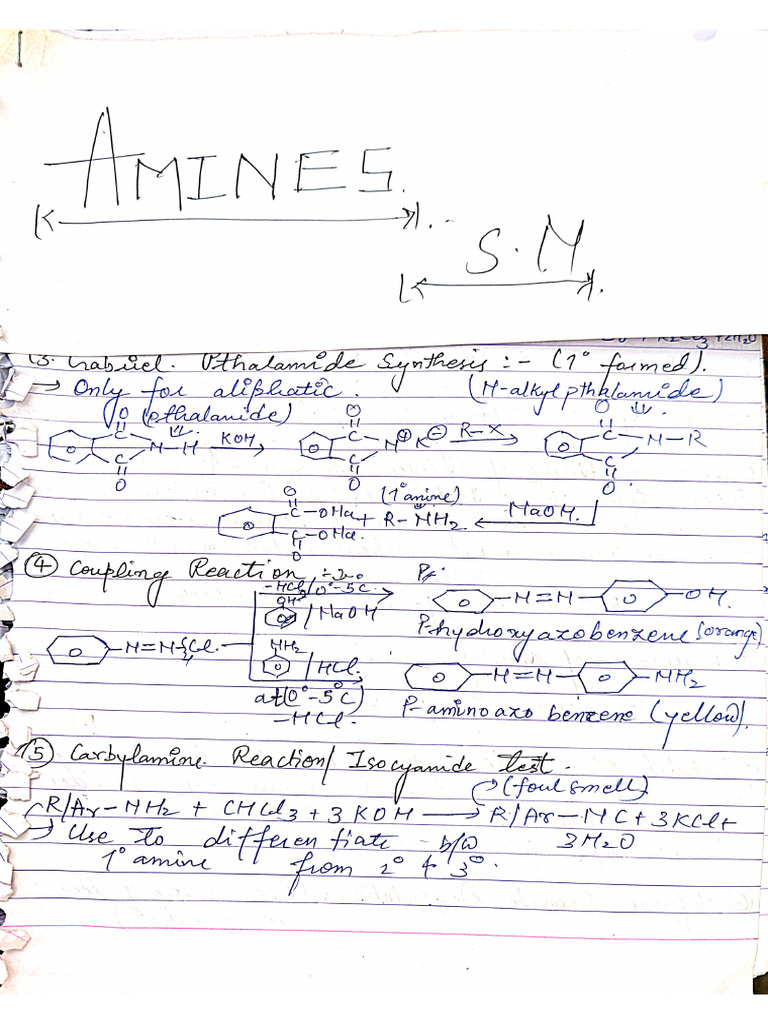 AMINES.
S.M
3. Gabriel. Pthalamide Synthesis :- (1° formed).
→ Only for aliphatic. (N-alkyl pthalamide)
(pthalamide)
O O O
C C C
N-H KOH → N⊕ K⊖ R-X → N-R
C C C
O O O
O (1° amine)
C-ONa + R-NH2 ← NaOH.
C-ONa.
O
④ Coupling Reaction
-HCl / 0°-5°C
OH / NaOH
N=N-OH.
P-hydroxyazobenzene (orange)
N=N-Cl.
NH2 / HCl.
N=N-NH2
at (0°-5°C)
-HCl.
P-aminoazo benzene (yellow).
⑤ Carbylamine Reaction/ Isocyanide test.
(foul smell)
R/Ar-NH2 + CHCl3 + 3KOH → R/Ar-NC + 3KCl +
→ Use to differentiate b/w 3H2O
1° amine from 2° & 3°.